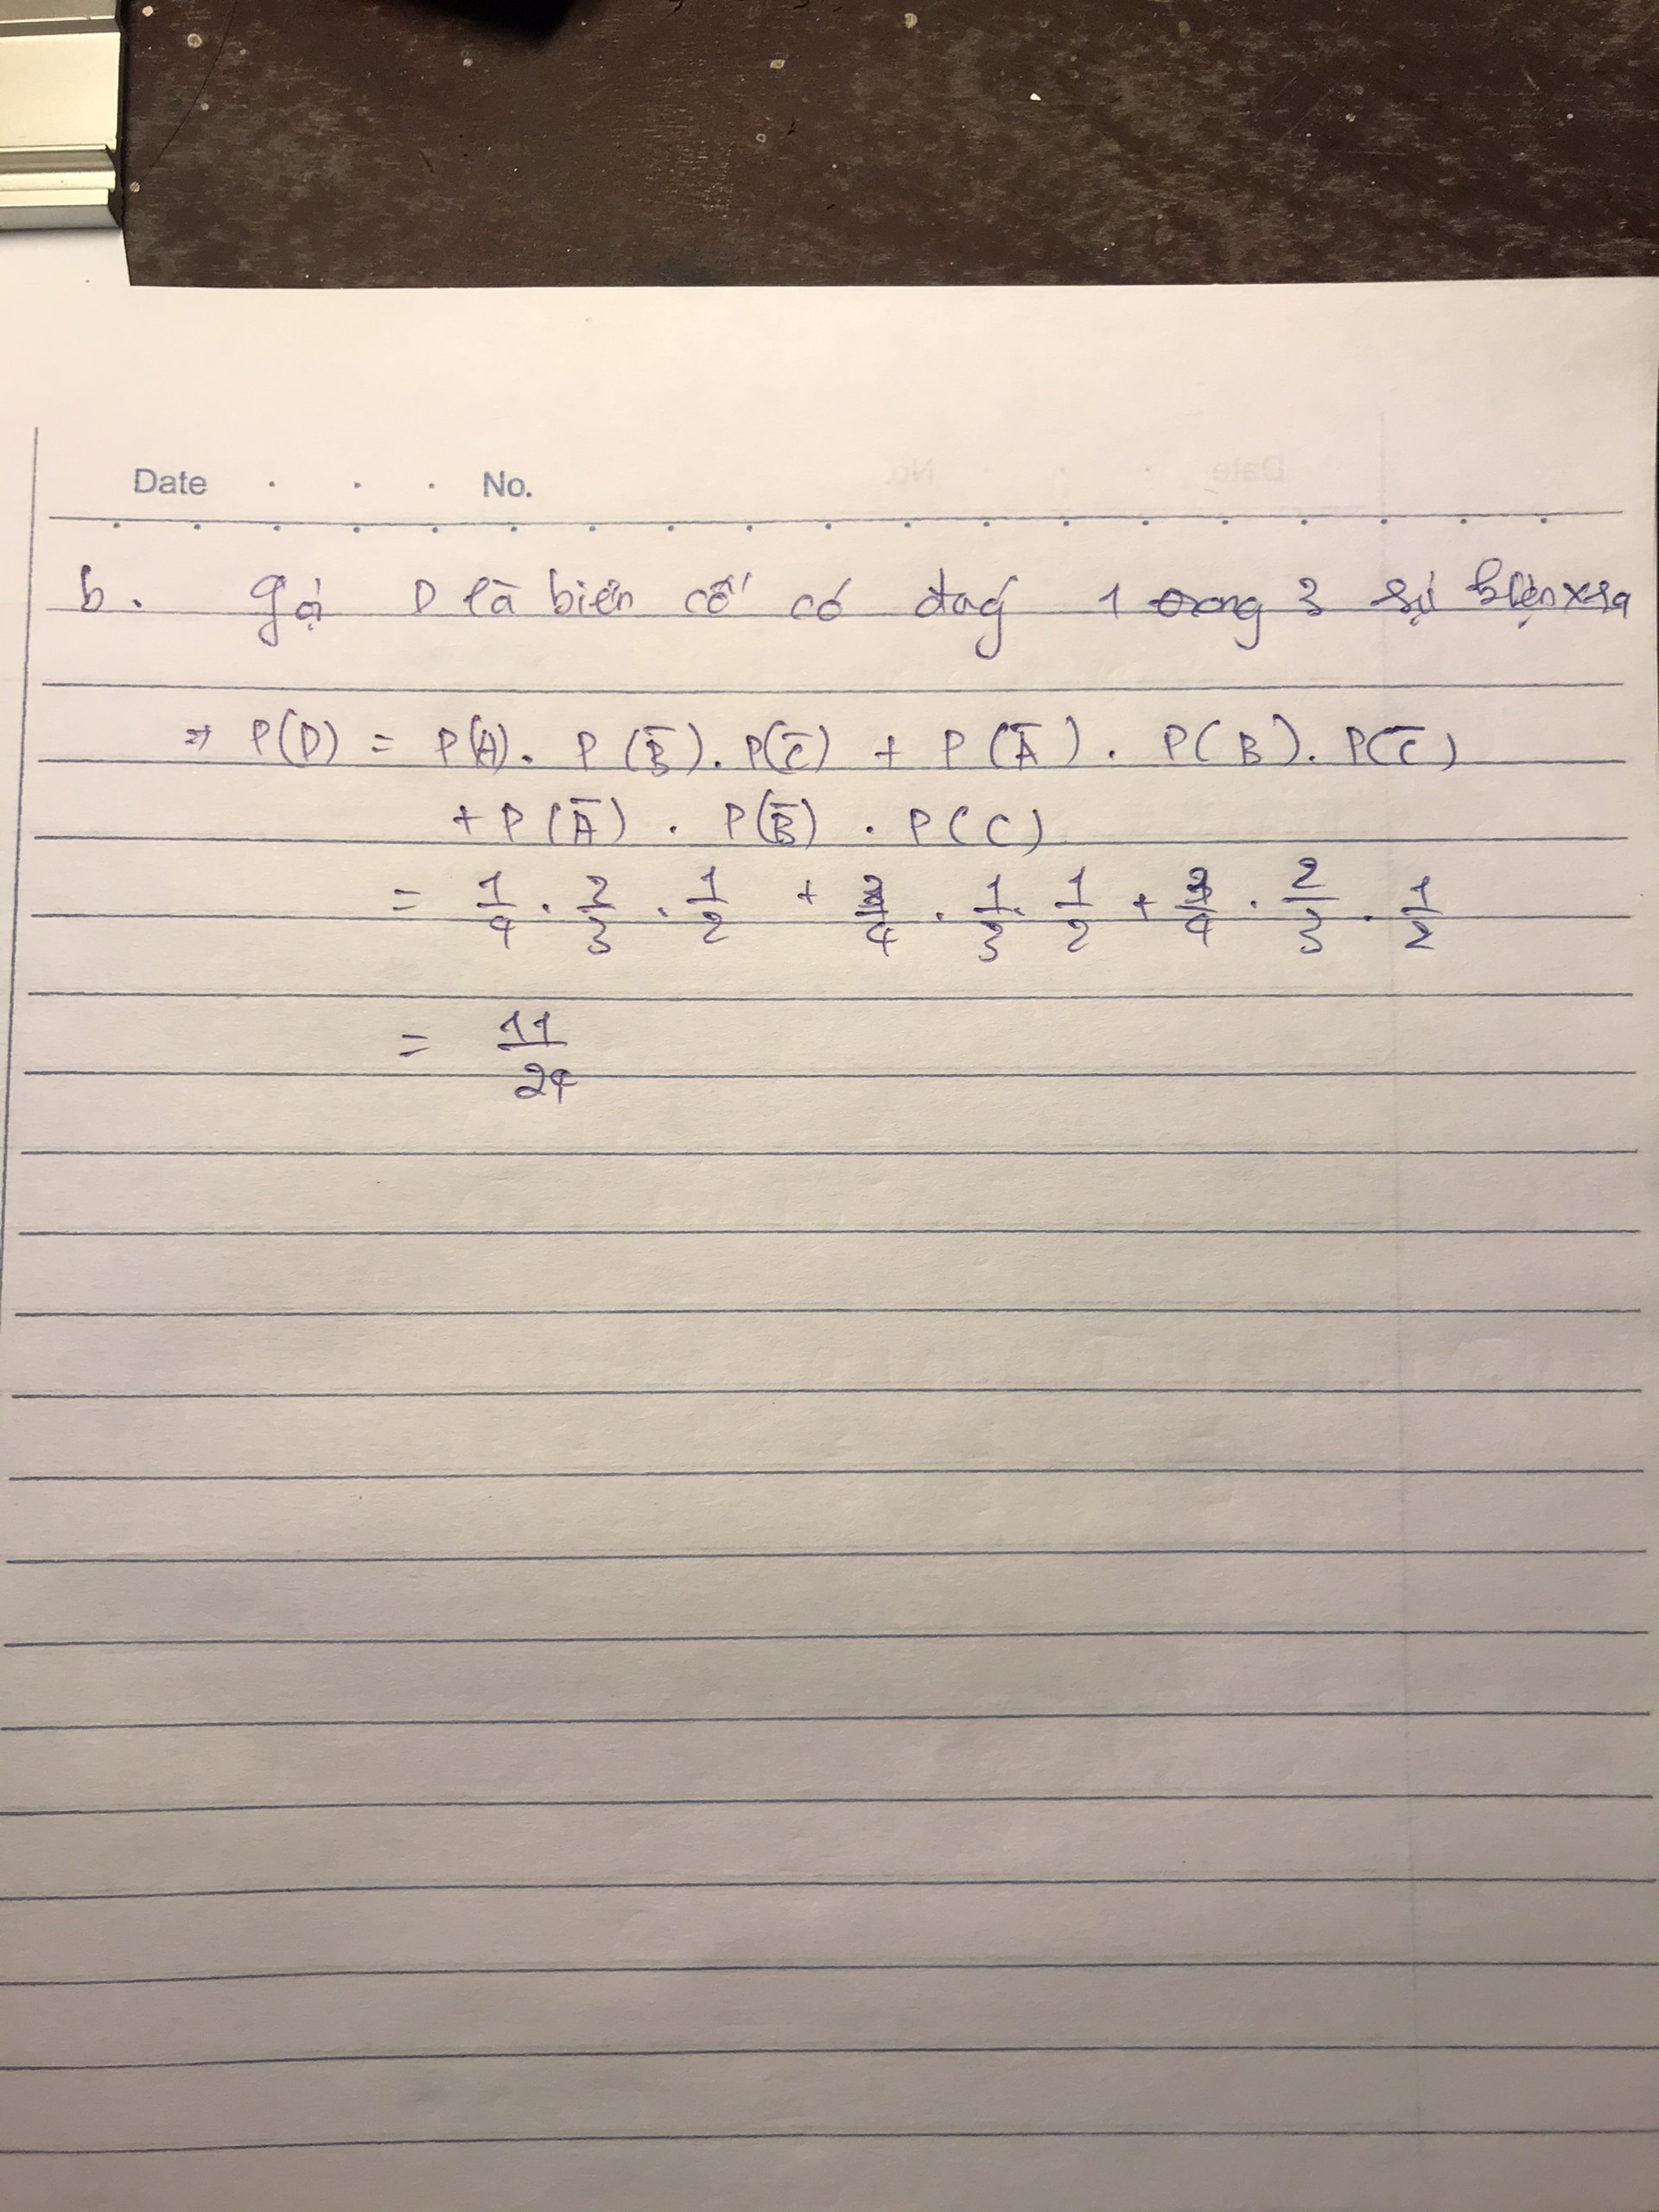 Date . . . No.
b. Gọi D là biến cố có đúng 1 trong 3 sự kiện xra
⇒ P(D) = P(A). P(B̅). P(C̅) + P(A̅). P(B). P(C̅)
+ P(A̅). P(B̅). P(C)
= 1/4 . 2/3 . 1/2 + 3/4 . 1/3 . 1/2 + 3/4 . 2/3 . 1/2
= 11/24